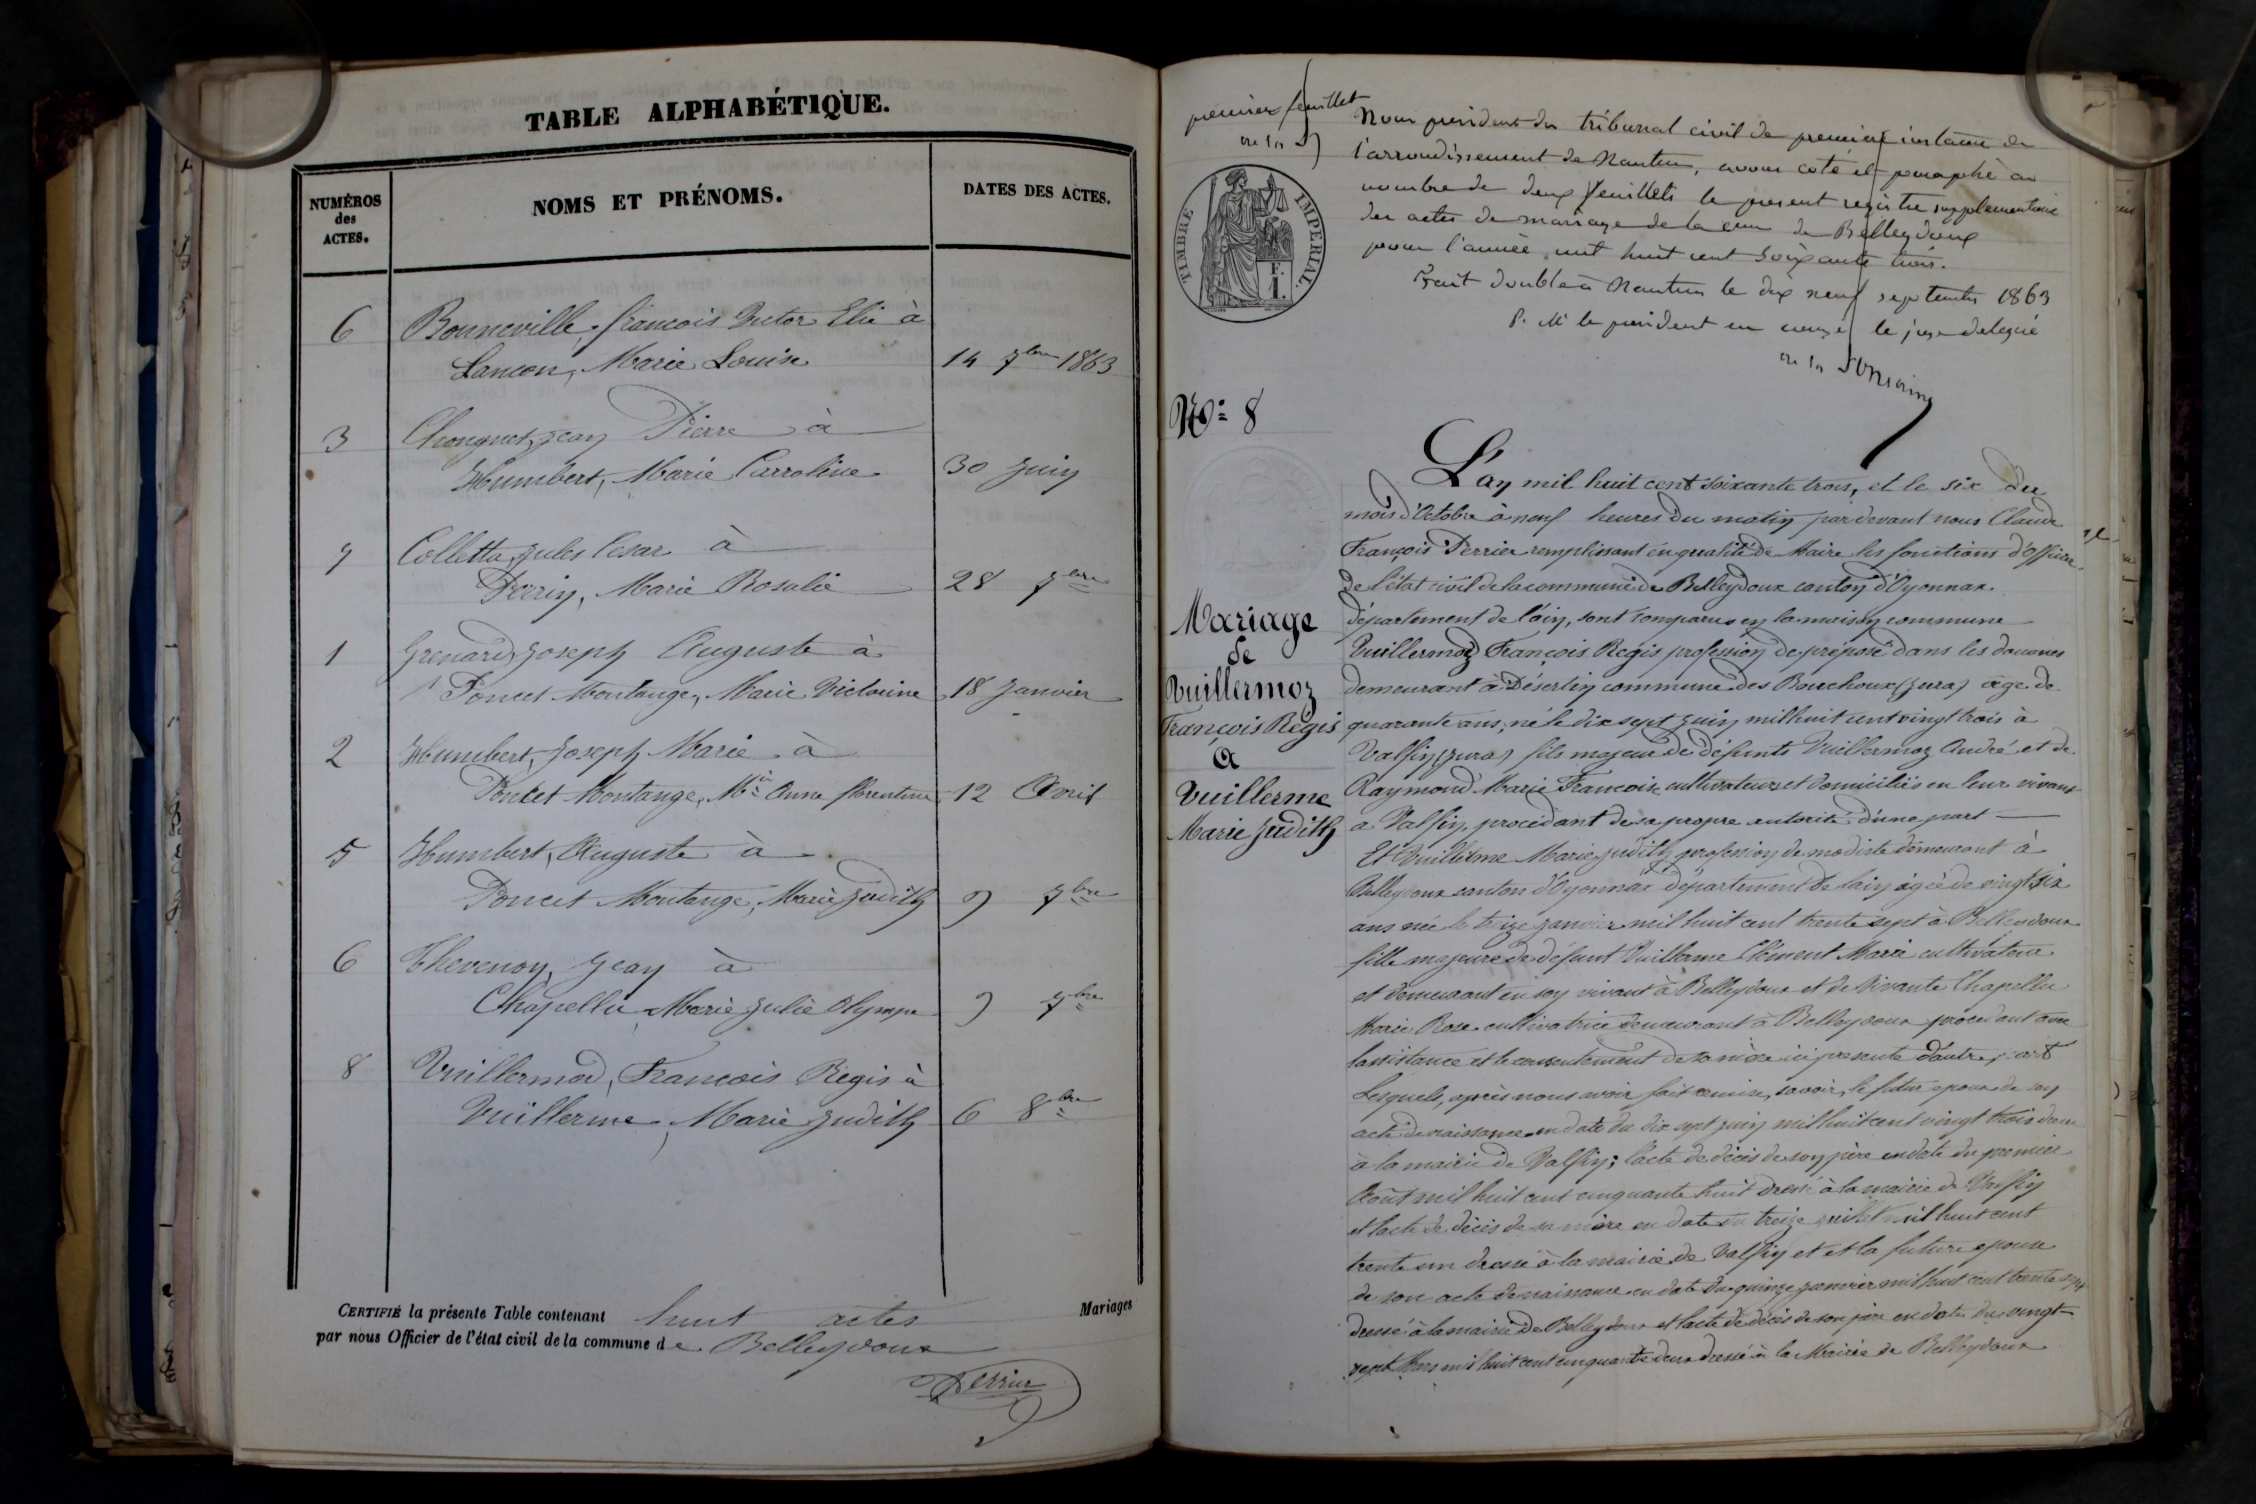 TABLE ALPHABÉTIQUE.
NUMÉROS
des
ACTES.
NOMS ET PRÉNOMS.
DATES DES ACTES.
6 Bonneville, françois Victor Elie à
Lançon, Marie Louise 14 7bre 1863
3 Changnet, Jean Pierre à
Humbert, Marie Carroline 30 Juin
7 Colletta, Jules Cesar à
Perrin, Marie Rosalie 28 7bre
1 Grenard, Joseph Auguste à
Poncet Montange, Marie Victorine 18 Janvier
2 Humbert, Joseph Marie à
Poncet Montange, Mie Anne florentine 12 Avril
5 Humbert, Auguste à
Poncet Montange, Marie Judith 9 7bre
6 Thevenon, Jean à
Chapellu Marie Julie Olympe 9 7bre
8 Vuillermod, François Regis à
Vuillerme, Marie Judith 6 8bre
CERTIFIÉ la présente Table contenant huit actes Mariages
par nous Officier de l'état civil de la commune de Belleydoux
Perrier
premier feuillet
TIMBRE IMPÉRIAL.
F.
I.
Nous président du tribunal civil de première instance de
l'arrondissement de Nantua, avons coté et paraphé au
nombre de deux feuillets le present registre supplementaire
des actes de mariage de la cne de Belleydoux
pour l'année mil huit cent soixante trois.
Fait double à Nantua le dix neuf septembre 1863
P. Mr le président en congé le juge délégué
No 8
Mariage
de
Vuillermoz
François Régis
à
Vuillerme
Marie Judith
L'an mil huit cent soixante trois, et le six du
mois d'Octobre à neuf heures du matin par devant nous Claude
François Perrier remplissant en qualité de Maire les fonctions d'officier
de l'état civil de la commune de Belleydoux canton d'Oyonnax.
département de l'ain, sont comparus en la maison commune
Vuillermoz François Regis profession de préposé dans les douanes
demeurant à Désertin commune des Bouchoux (Jura) âge de
quarante ans, né le dix sept Juin mil huit cent vingt trois à
Valfin (Jura) fils majeur de défunts Vuillermoz André et de
Raymond Marie Françoise cultivateurs et domiciliés en leur vivant
a Valfin, procédant de sa propre autorité d'une part
Et Vuillerme Marie Judith profession de modiste demeurant à
Belleydoux canton d'Oyonnax département de l'ain âgée de vingt six
ans née le treize janvier mil huit cent trente sept à Belleydoux
fille majeure de défunt Vuillerme Clément Marie cultivateur
et demeurant en son vivant à Belleydoux et de vivante Chapellu
Marie Rose cultivatrice demeurant à Belleydoux procédant avec
l'assistance et le consentement de sa mère ici présente d'autre part
Lesquels, après nous avoir fait remise, savoir, le futur epoux de son
acte de naissance en date du dix sept juin mil huit cent vingt trois dressé
à la mairie de Valfin; l'acte de décès de son père en date du premier
Août mil huit cent cinquante huit dressé à la mairie de Valfin
et l'acte de décès de sa mère en date du treize juillet mil huit cent
trente un dressé à la mairie de Valfin et et la future epouse
de son acte de naissance en date du quinze janvier mil huit cent trente sept
dressé à la mairie de Belleydoux et l'acte de décès de son père en date du vingt
sept Mars mil huit cent cinquante deux dressé à la Mairie de Belleydoux